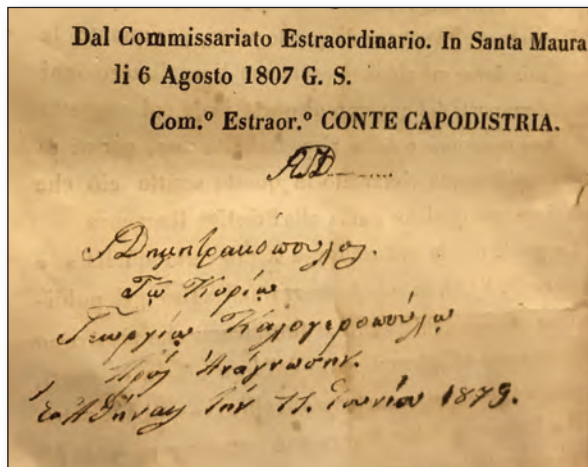 Dal Commissariato Estraordinario. In Santa Maura
li 6 Agosto 1807 G. S.
Com.º Estraor.º CONTE CAPODISTRIA.
ΑΔ
ΑΔημητρακοπουλος.
Τῷ Κυρίῳ
Γεωργίῳ Καλογεροπούλῳ
Πρὸς Ἀνάγνωσιν.
Ἐν Ἀθήναις τὴν 11. Ἰουνίου 1879.